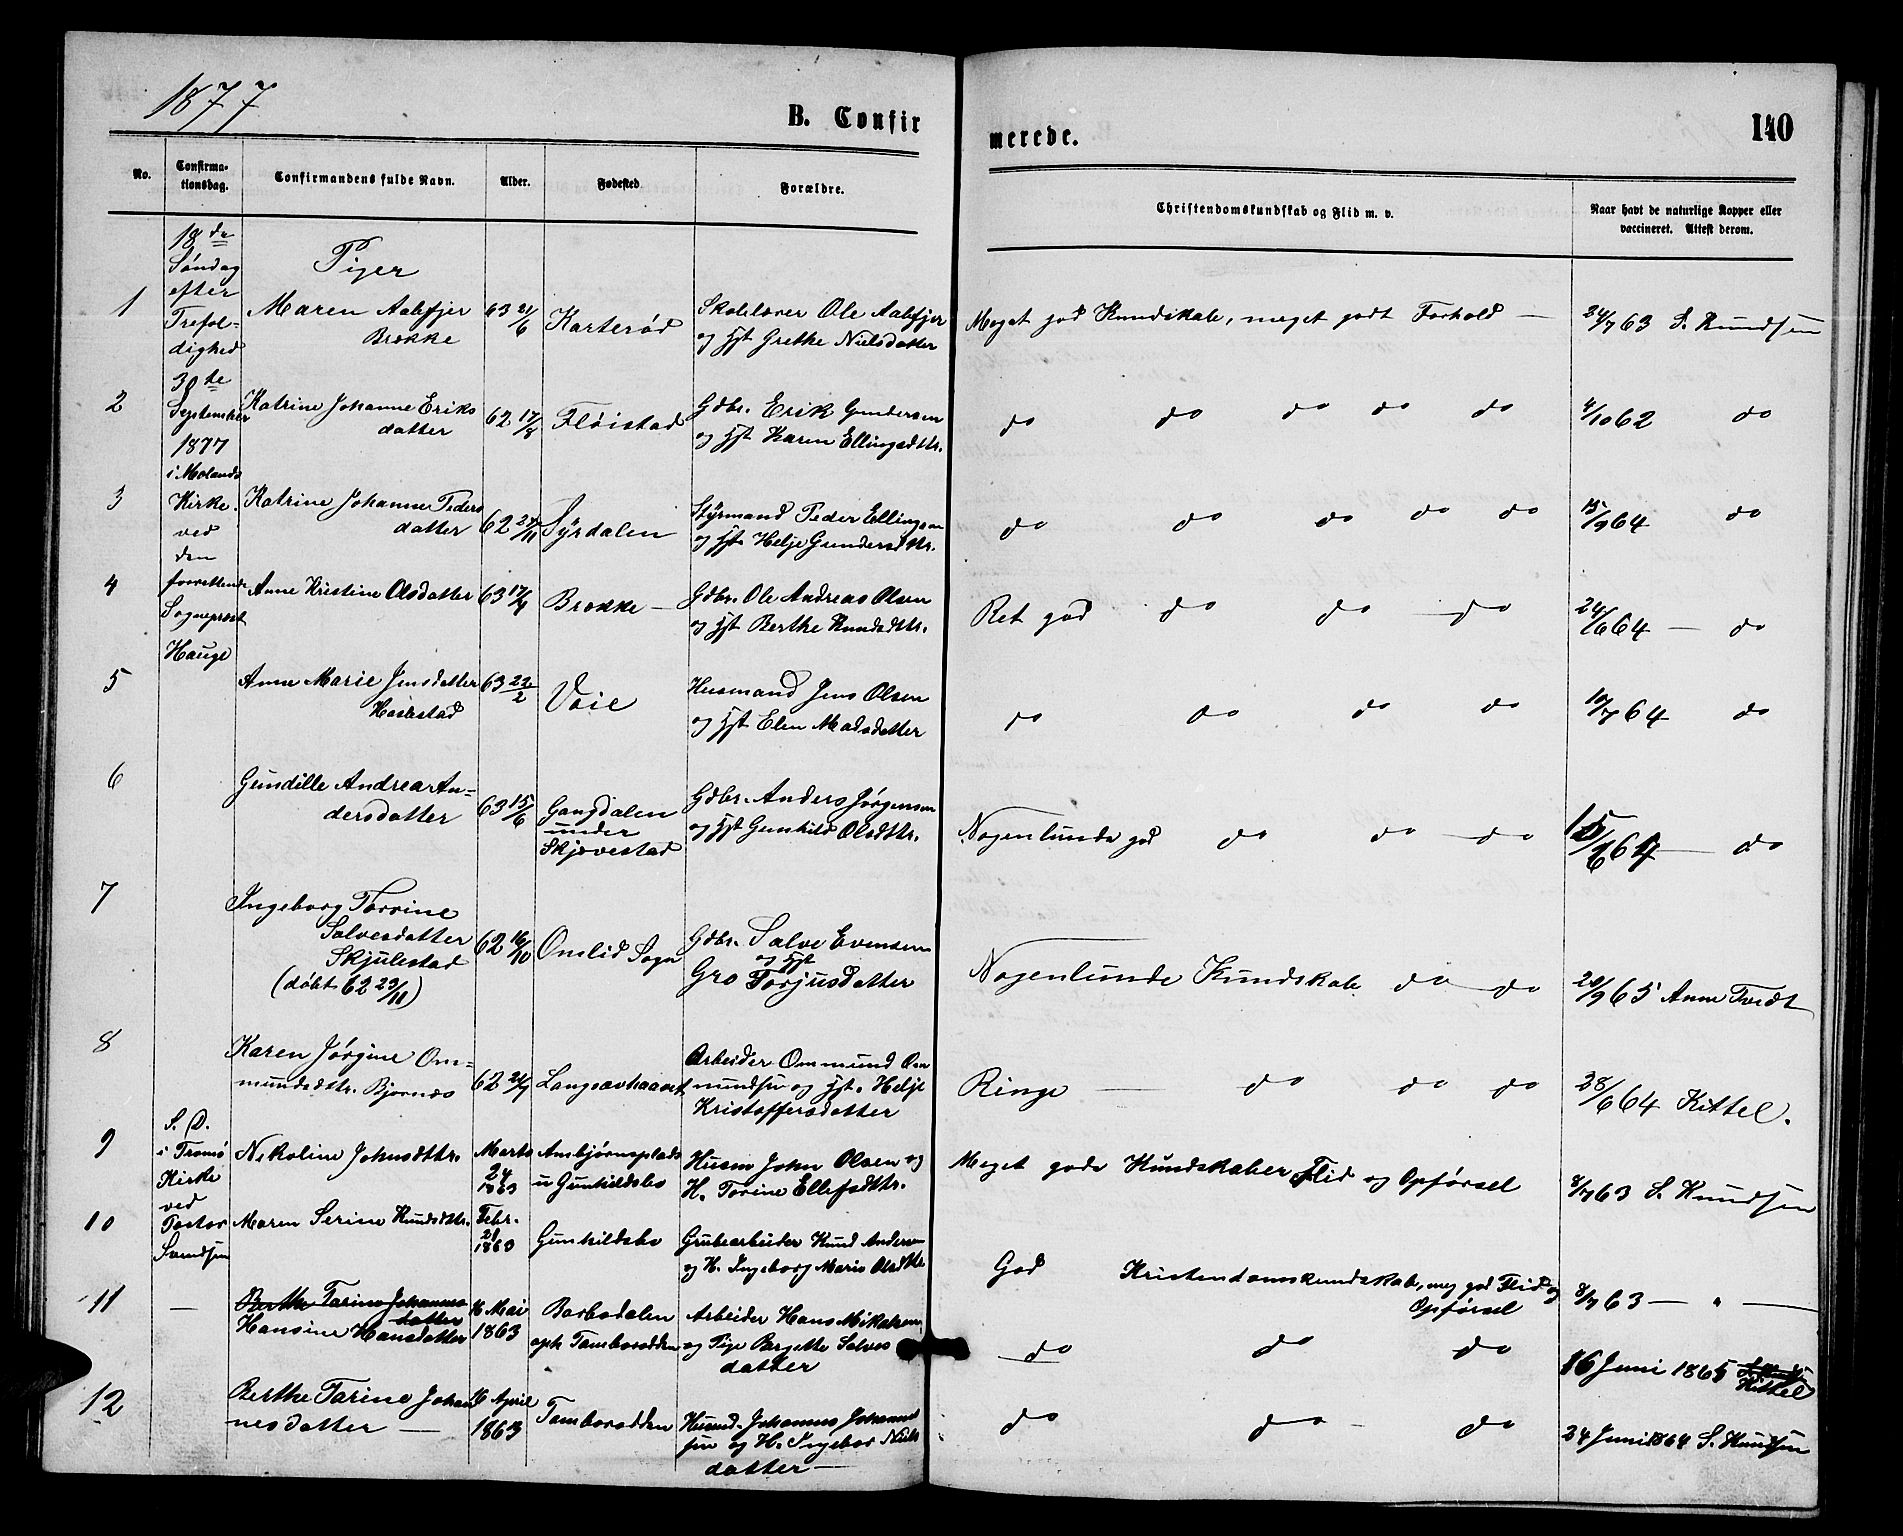 1877
B. Confir
merede.
140
No.
Confirma-
tionsdag.
Confirmandens fulde Navn.
Alder.
Fødested
Forældre.
Christendomskundskab og Flid m. v.
Naar havt de naturlige Kopper eller
vaccineret. Attest derom.
18de
Søndag
efter
Trefol-
dighed
30te
September
1877
i Molands
Kirke
ved
den
forrettende
Sognepræst
Hauge
Piger
1
Maren Aabfjer
Brække
63 21/6
Karterød
Skolelærer Ole Aabfjer
og Hst Grethe Nielsdatter
Meget god Kundskab, meget godt Forhold —
24/7 63 S. Knudsen
2
Katrine Johanne Eriks
datter
62 17/8
Fløistad
Gdbr. Erik Gundersen
og Hst Karen Ellingsdttr.
do do do do do
4/10 62 do
3
Katrine Johanne Peders
datter
62 27/11
Syrdalen
Styrmand Peder Ellingsen
og Hst. Helje Gundersdttr.
do do do do do
15/9 64 do
4
Anne Kristine Olsdatter
63 17/4
Brække —
Gdbr. Ole Andreas Olsen
og Hst Berthe Knudsdttr.
Ret god do do — do
24/6 64 — do
5
Anne Marie Jensdatter
63 22/2
Vaie
Husmand Jens Olsen
og Hst Elen Madsdatter
do do do do
10/7 64 do
6
Gundille Andrea An=
dersdatter
63 15/6
Gangdalen
under
Skjævestad
Gdbr. Anders Jørgensen
og Hst Gunhild Olsdttr.
Nogenlunde god do do — do
15/6 64 — do
7
Ingeborg Torrine
Salvesdatter
Skjulestad
(døbt 62 23/11)
62 16/10
Omlid Sogn
Gdbr. Salve Evensen
og Hst
Gro Torjusdatter
Nogenlunde Kundskab do — do
20/9 65 Anne Tvedt
8
Karen Jørgine Om=
mundsdttr. Bjørnæs
62 21/7
Langsævhaavet
Arbeider Ommund Om
mundsen og Hst. Helje
Kristoffersdatter
Ringe — do do do
28/6 64 Kittel.
S. D.
i Tromø
Kirke
ved
Pastor
Svendsen
9
Nikoline Johnsdttr.
Marts
24
1863
Ambjørnsplads
u Gunhildsbo
Husm John Olsen og
H. Torine Ellefsdttr.
Meget gode Kundskaber Flid og Opførsel
8/7 63 S. Knudsen
10
Maren Serine Knudsdttr.
Febr.
21
1863
Gunhildsbo
Grubearbeider Knud Andersen
og H. Ingeborg Marie Olsdttr
God Kristendomskundskab, meg god Flid og
Opførsel
8/7 63 — " —
11
—
Berthe Tarine Johannes
datter
Hansine Hansdatter
16 Mai
1863
Barbodalen
oph Tamborodden
Arbeider Hans Mikalsen
og Pige Birgitte Salves
datter
do do do
16 Juni 1865
Kittel
12
Berthe Tarine Johan
nesdatter —
16 April
1863
Tamborodden
Husmd. Johannes Johannes
sen og H. Ingebor Niels
datter —
do do — do
24 Juni 1864 S. Knudsen